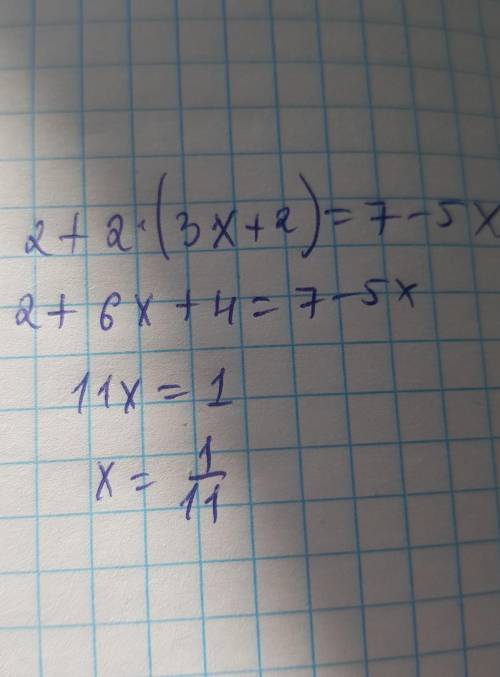 2 + 2 · (3x + 2) = 7 - 5x
2 + 6x + 4 = 7 - 5x
11x = 1
x = 1/11